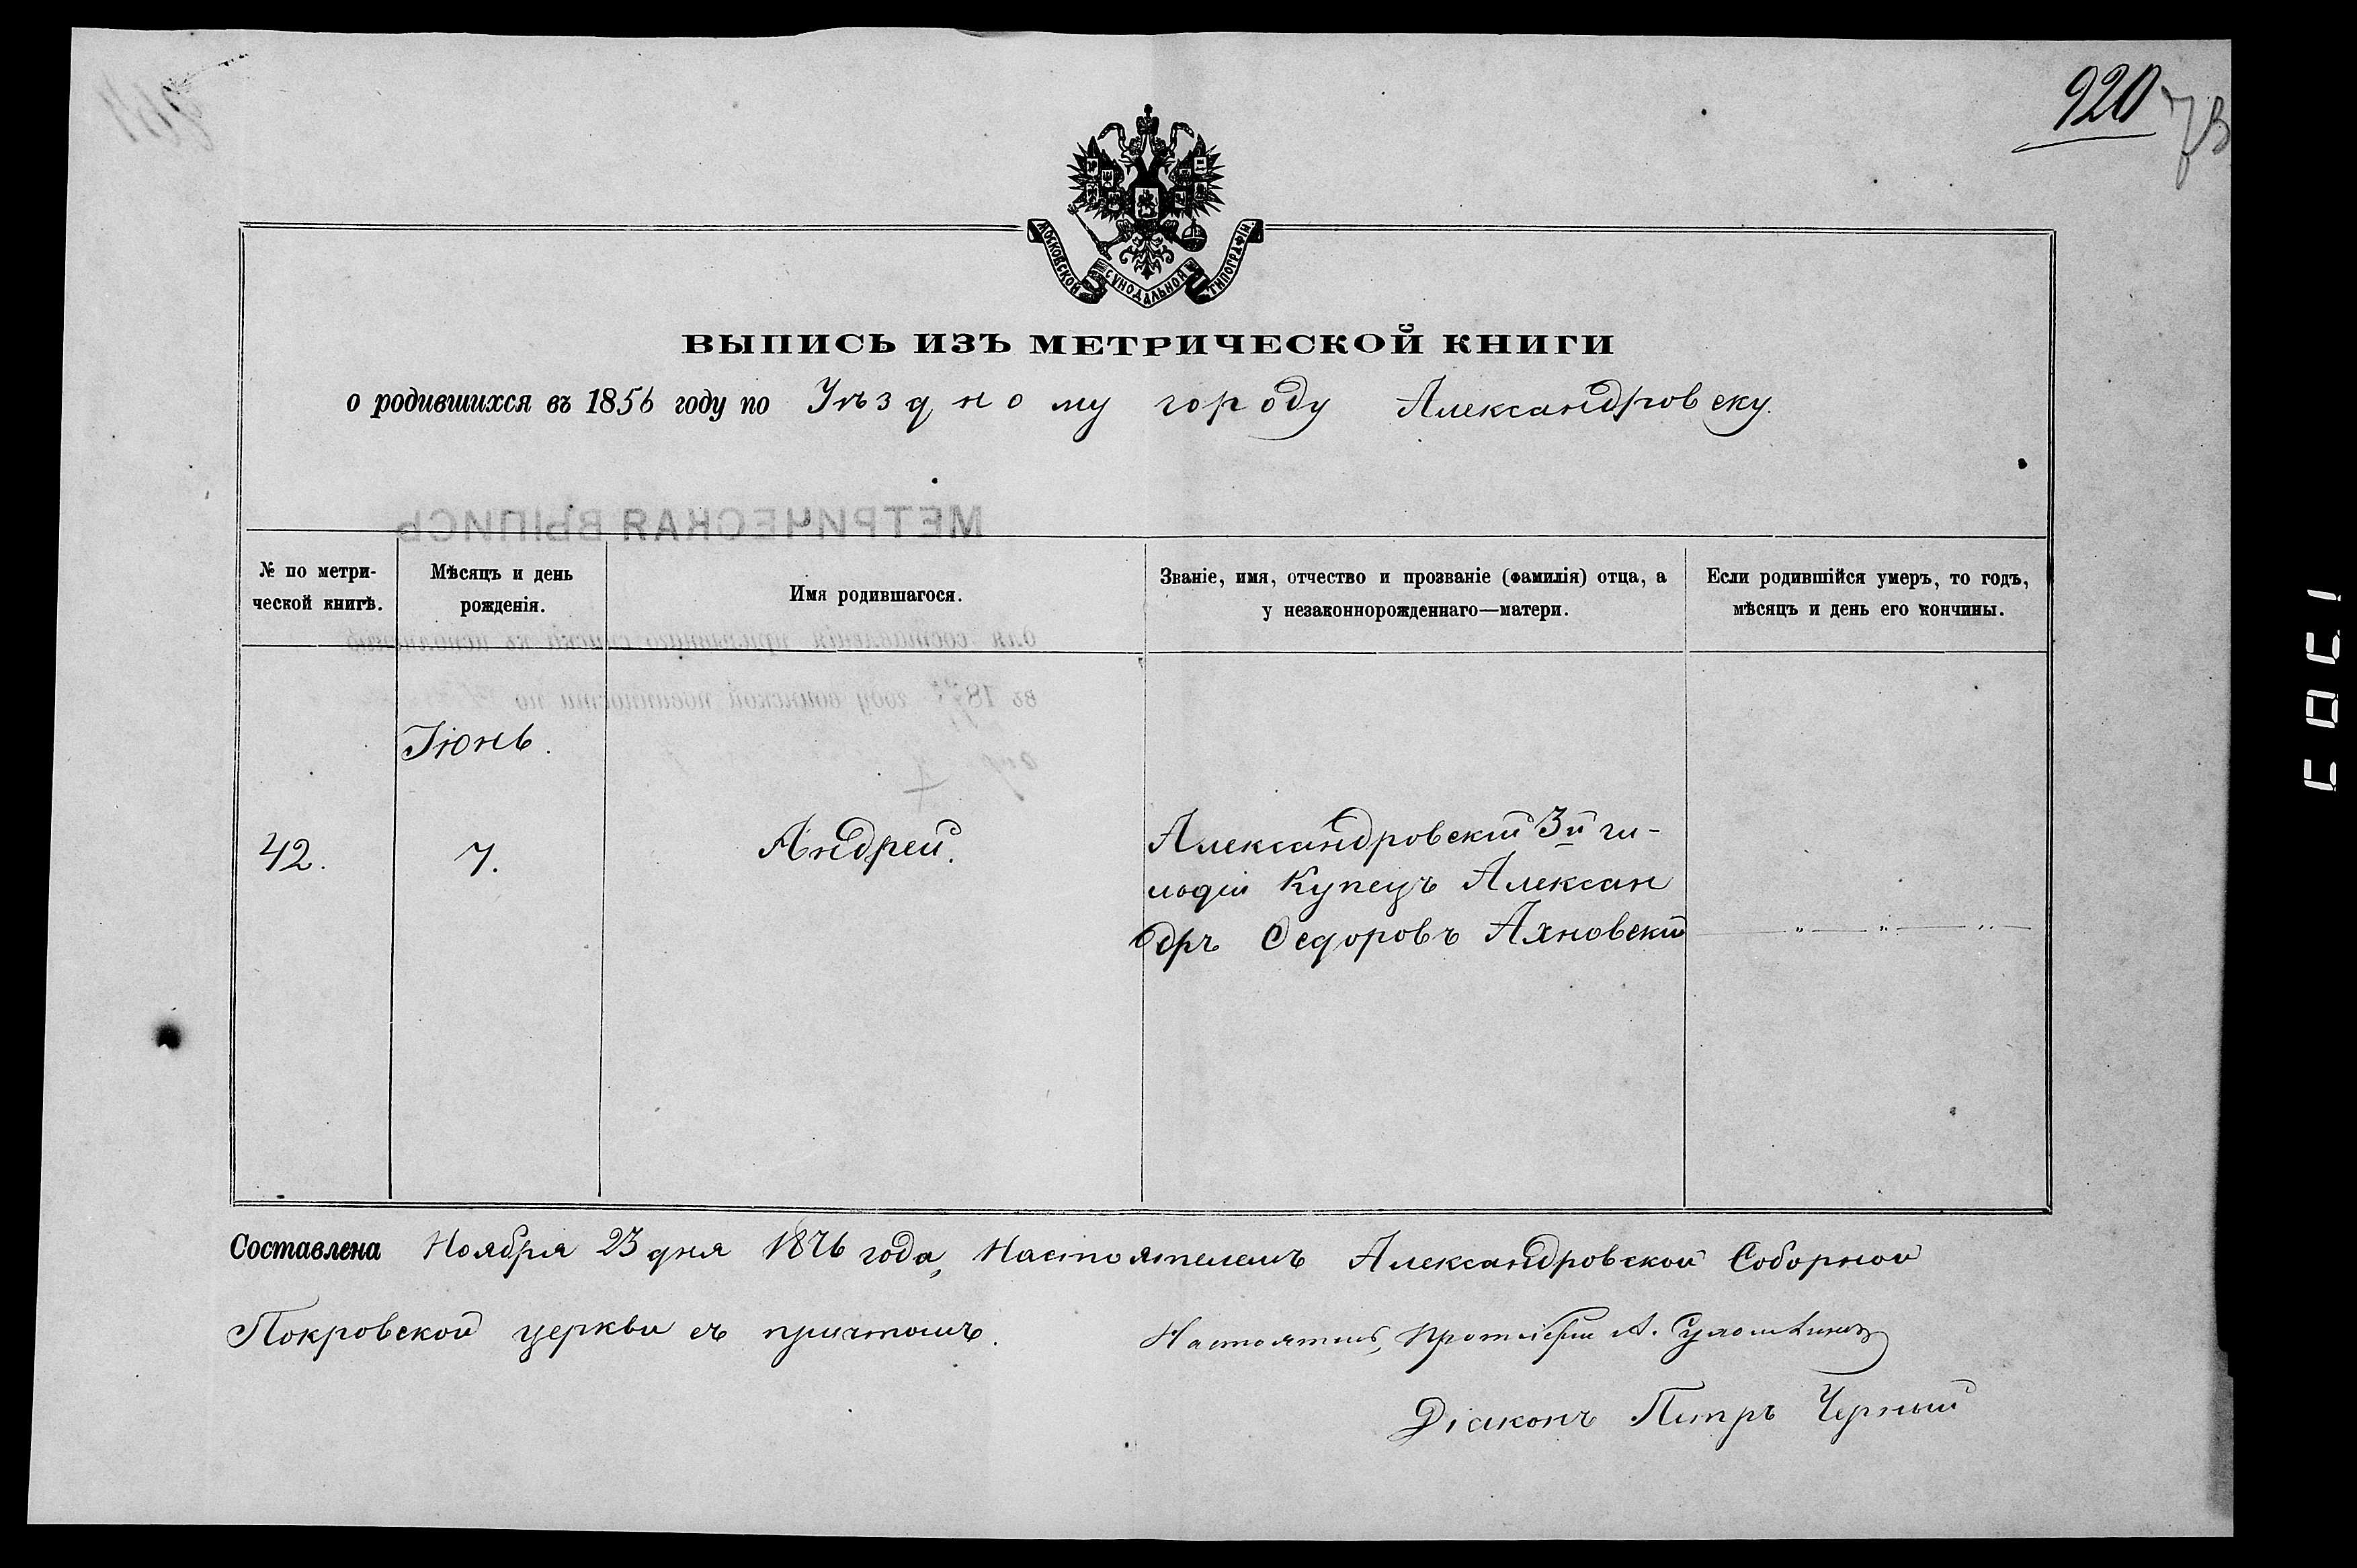 920
73
МОСКОВСКОЙ СѴНОДАЛЬНОЙ ТИПОГРАФІИ.
ВЫПИСЬ ИЗЪ МЕТРИЧЕСКОЙ КНИГИ
о родившихся въ 1856 году по Уѣздному городу Александровску.
МЕТРИЧЕСКАЯ ВЫПИСЬ
№ по метри-
ческой книгѣ.
Мѣсяцъ и день
рожденія.
Имя родившагося.
Званіе, имя, отчество и прозваніе (фамилія) отца, а
у незаконнорожденнаго—матери.
Если родившійся умеръ, то годъ,
мѣсяцъ и день его кончины.
для составленія призывнаго списка къ исполненію
въ 18 году воинской повинности по
Іюнь.
42.
7.
Андрей.
Александровскій 3й ги-
льдіи Купецъ Алексан
дръ Ѳедоровъ Ахновскій
Составлена Ноября 23 дня 1876 года, Настоятелемъ Александровской Соборной
Покровской церкви съ причтомъ.
Настоятель, Протоіерей А.
Діаконъ Петръ Черный